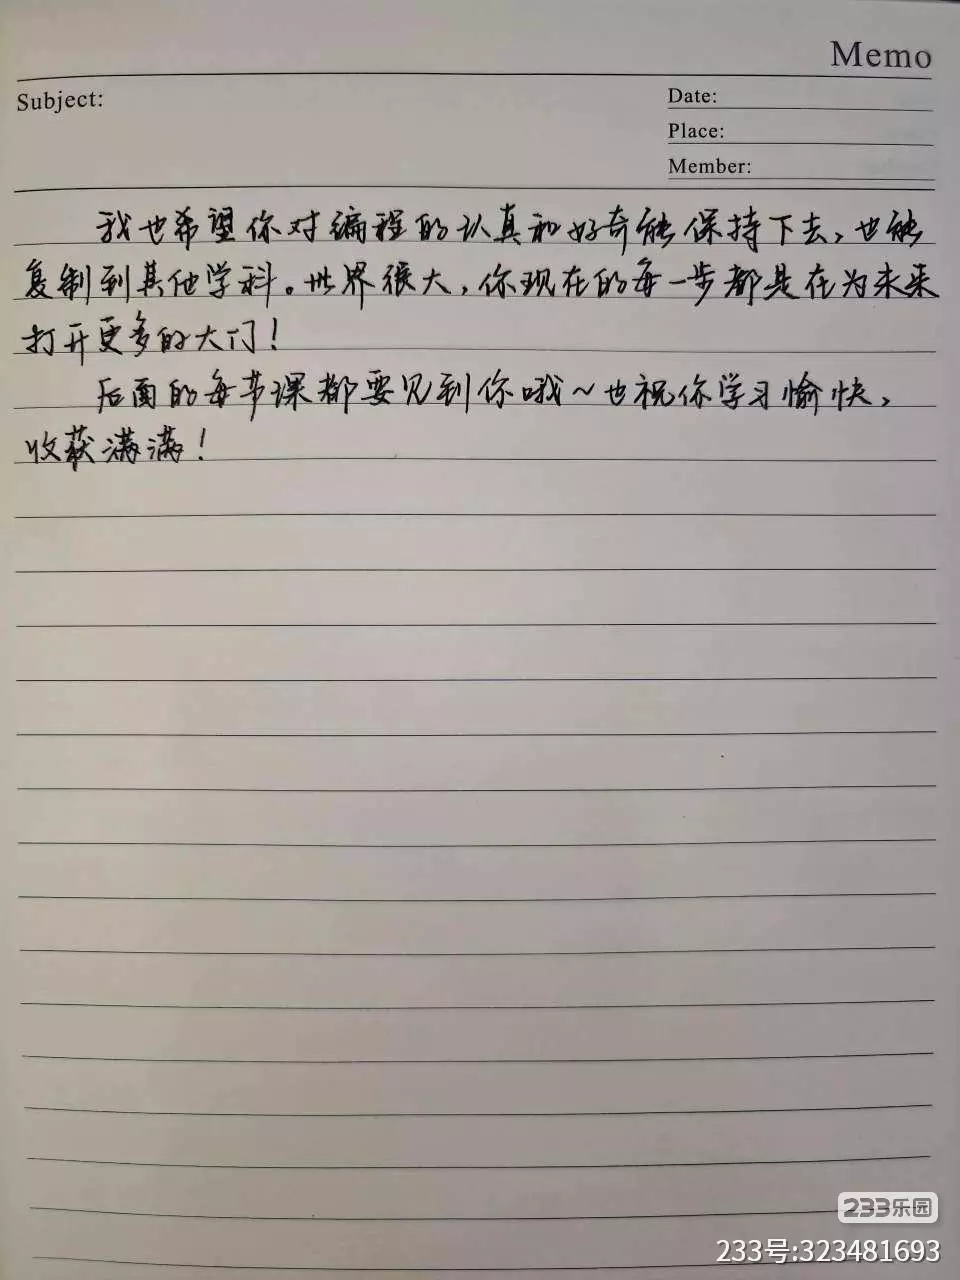 Memo
Subject:
Date:
Place:
Member:
我也希望你对编程的认真和好奇能保持下去,也能
复制到其他学科。世界很大,你现在的每一步都是在为未来
打开更多的大门!
后面的每节课都要见到你哦~也祝你学习愉快,
收获满满!
233乐园
233号:323481693